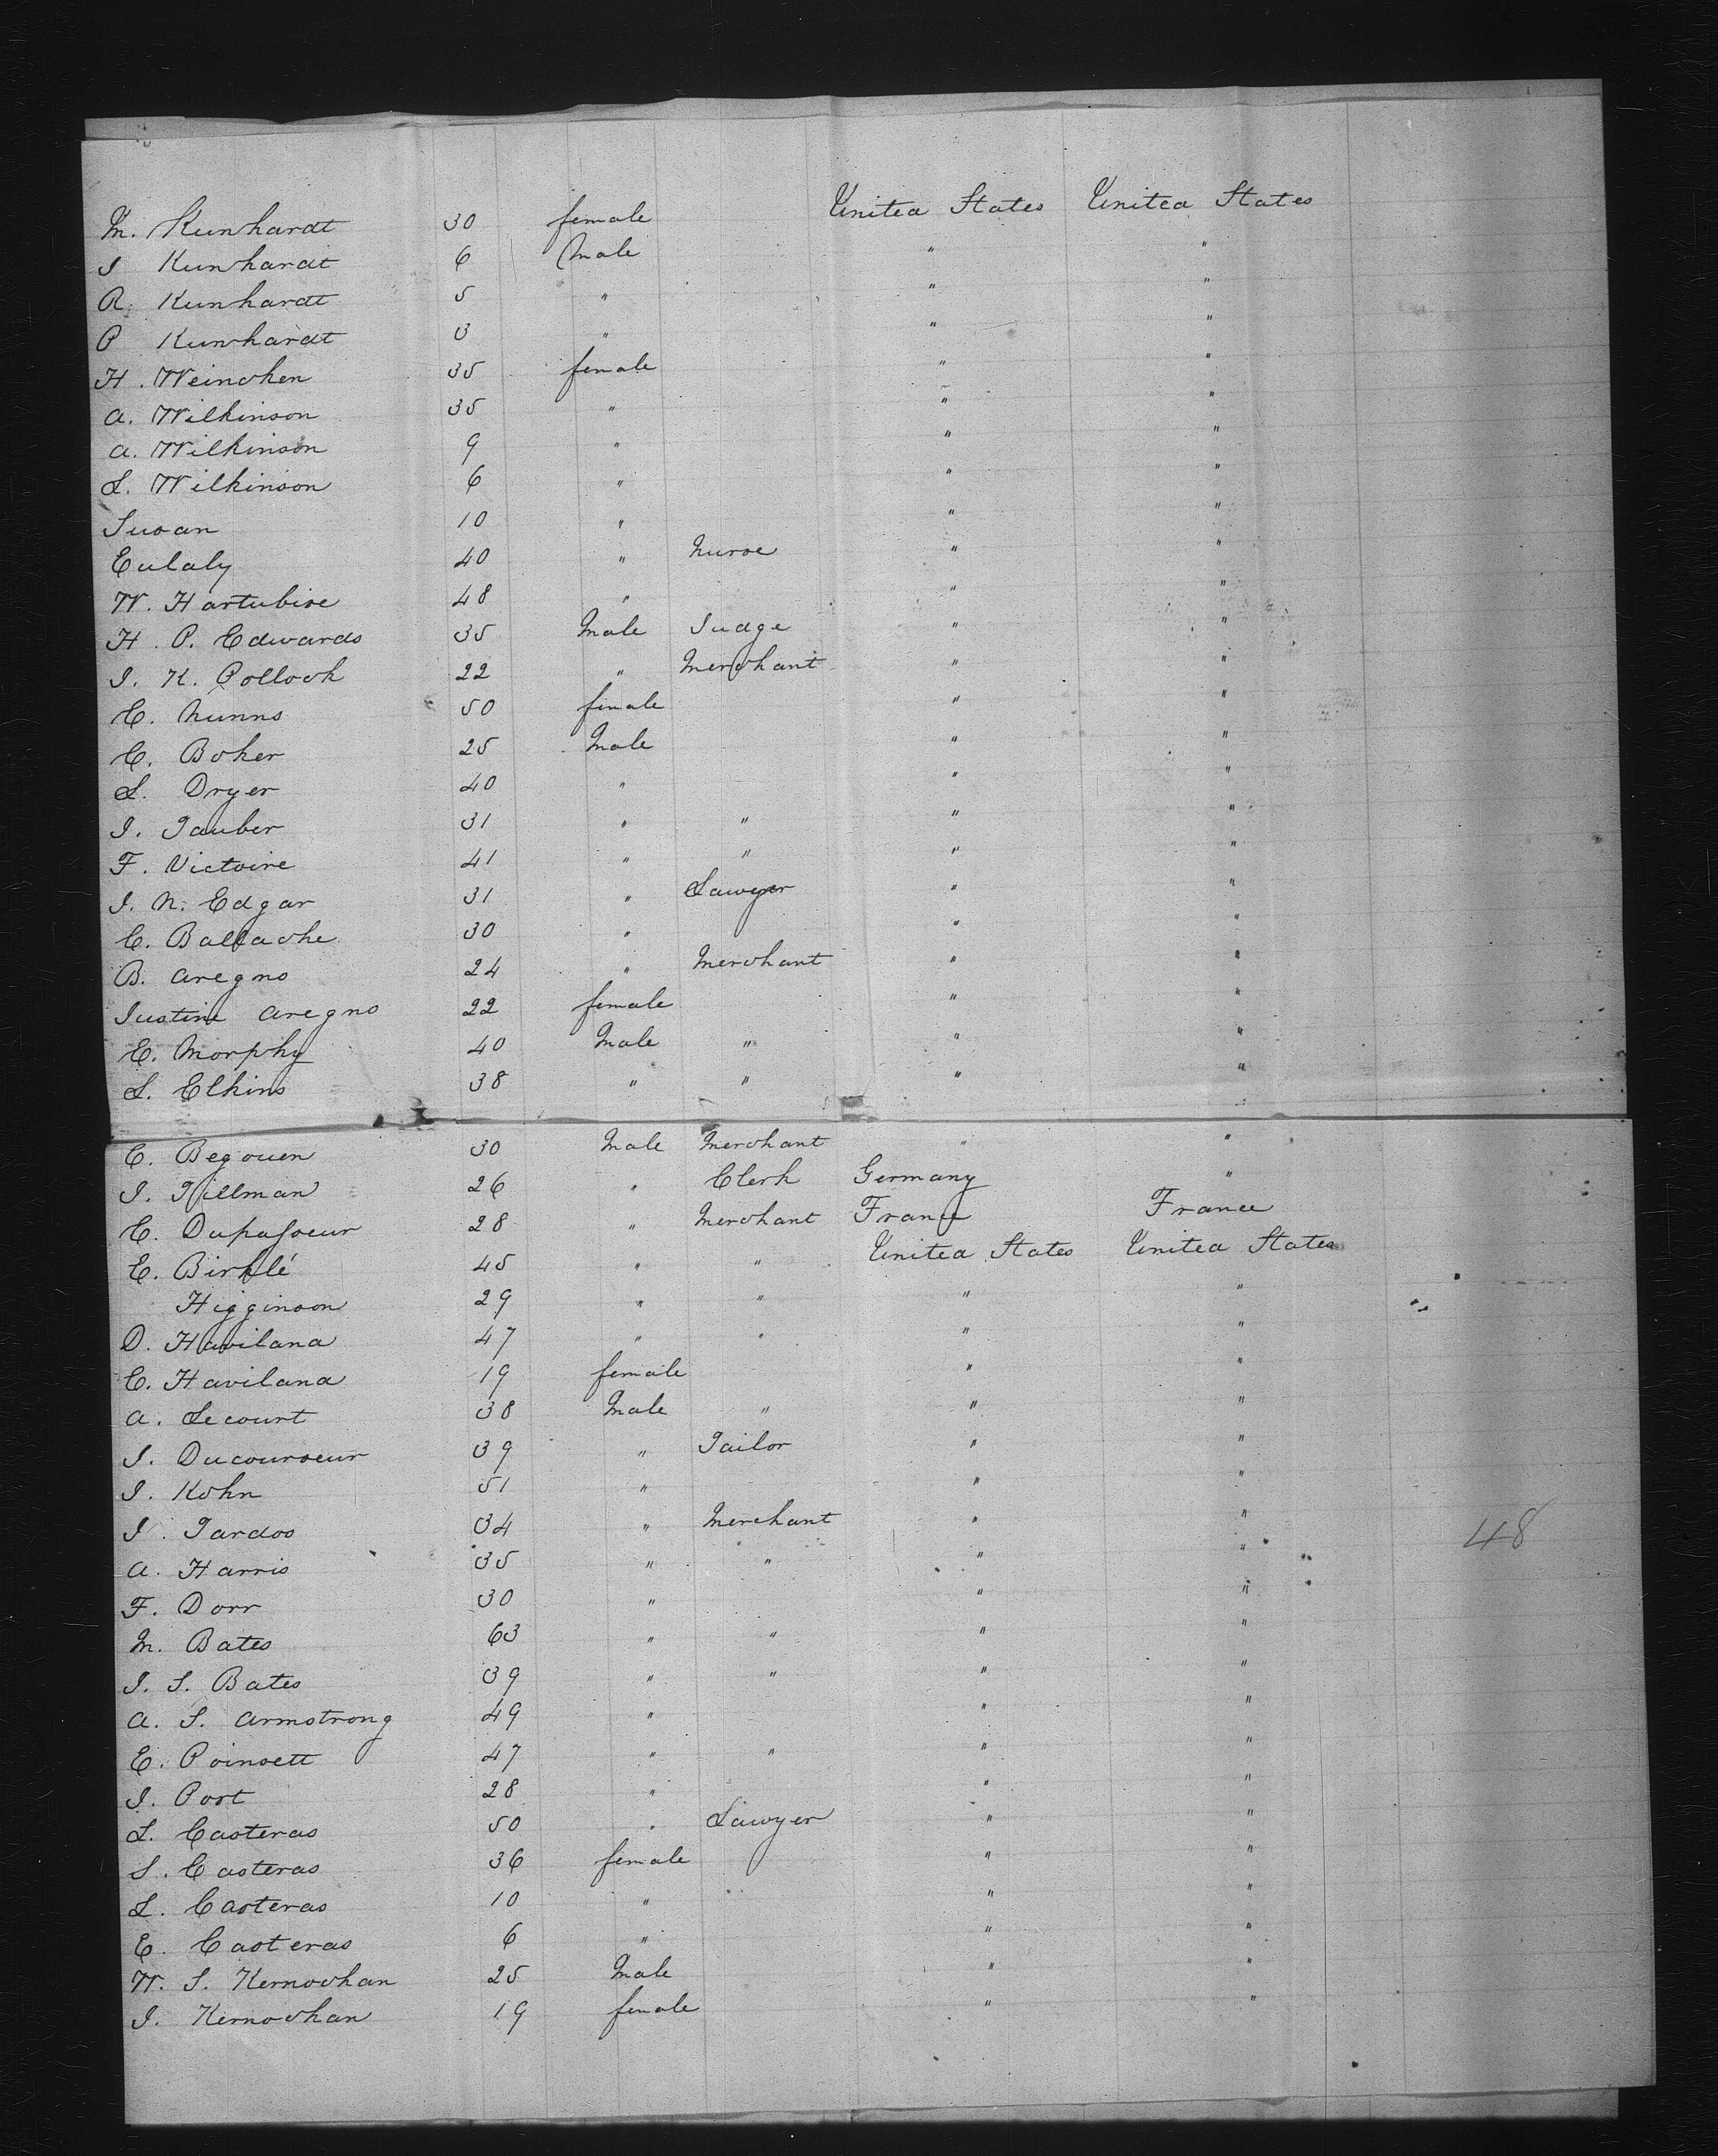 M. Kunhardt 30 female United States United States
I Kunhardt 6 Male " "
R. Kunhardt 5 " " "
P Kunhardt 3 " " "
H. Weinchen 35 female " "
A. Wilkinson 35 " " "
A. Wilkinson 9 " " "
L. Wilkinson 6 " " "
Susan 10 " " "
Eulaly 40 " Nurse " "
W. Hartubise 48 " " "
H. P. Edwards 35 Male Judge " "
I. K. Pollock 22 " Merchant " "
E. Nunns 50 female " "
C. Boker 25 Male " "
L. Dryer 40 " " "
I. Tauber 31 " " " "
F. Victoire 41 " " " "
I. N. Edgar 31 " Lawyer " "
C. 30 " " "
B. Aregno 24 " Merchant " "
Justine Aregno 22 female " "
E. Morphy 40 Male " " "
L. Elkins 38 " " " "
C. Begouen 30 Male Merchant " "
I. Tillman 26 " Clerk Germany "
C. Dupasseur 28 " Merchant France France
E. Birklé 45 " " United States United States
Higginson 29 " " " "
D. Haviland 47 " " " "
C. Haviland 19 female " "
A. Lecourt 38 Male " " "
I. Ducourseur 39 " Tailor " "
I. Kohn 51 " " "
I. Tardos 34 " Merchant " "
A. Harris 35 " " " "
F. Dorr 30 " " "
M. Bates 63 " " " "
I. S. Bates 39 " " " "
A. S. Armstrong 49 " " "
E. Poinsett 47 " " " "
I. Post 28 " " "
L. Casteras 50 " Lawyer " "
S. Casteras 36 female " "
L. Casteras 10 " " "
E. Casteras 6 " " "
W. S. Kernochan 25 Male " "
I. Kernochan 19 female " "
48